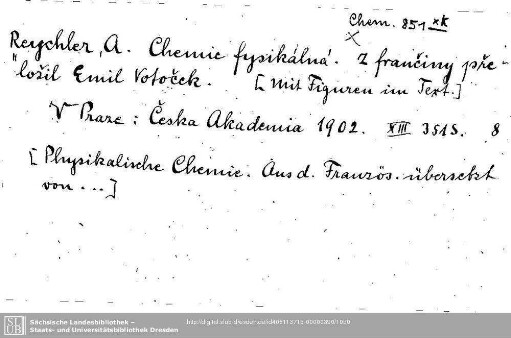 Chem. 851 xk
Reychler, A. Chemie fysikálná. Z frančiny pře-
ložil Emil Votoček. [Mit Figuren im Text.]
V Praze: Česka Akademia 1902. XIII 351 S. 8
[Physikalische Chemie. Aus d. Französ. übersetzt
von ...]
SLUB
Sächsische Landesbibliothek –
Staats- und Universitätsbibliothek Dresden